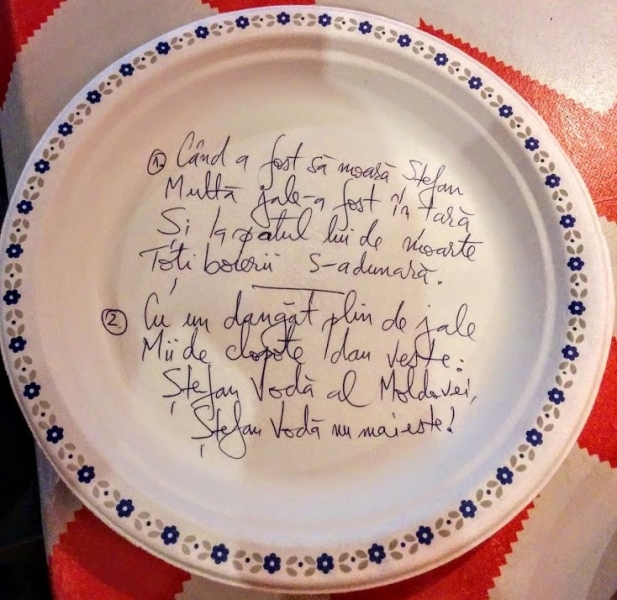 1. Când a fost să moară Ștefan
Multă jale-a fost în țară
Și la patul lui de moarte
Toți boierii s-adunară.
2. Cu un dangăt plin de jale
Mii de clopote dau veste:
Ștefan Vodă al Moldovei,
Ștefan Vodă nu mai este!